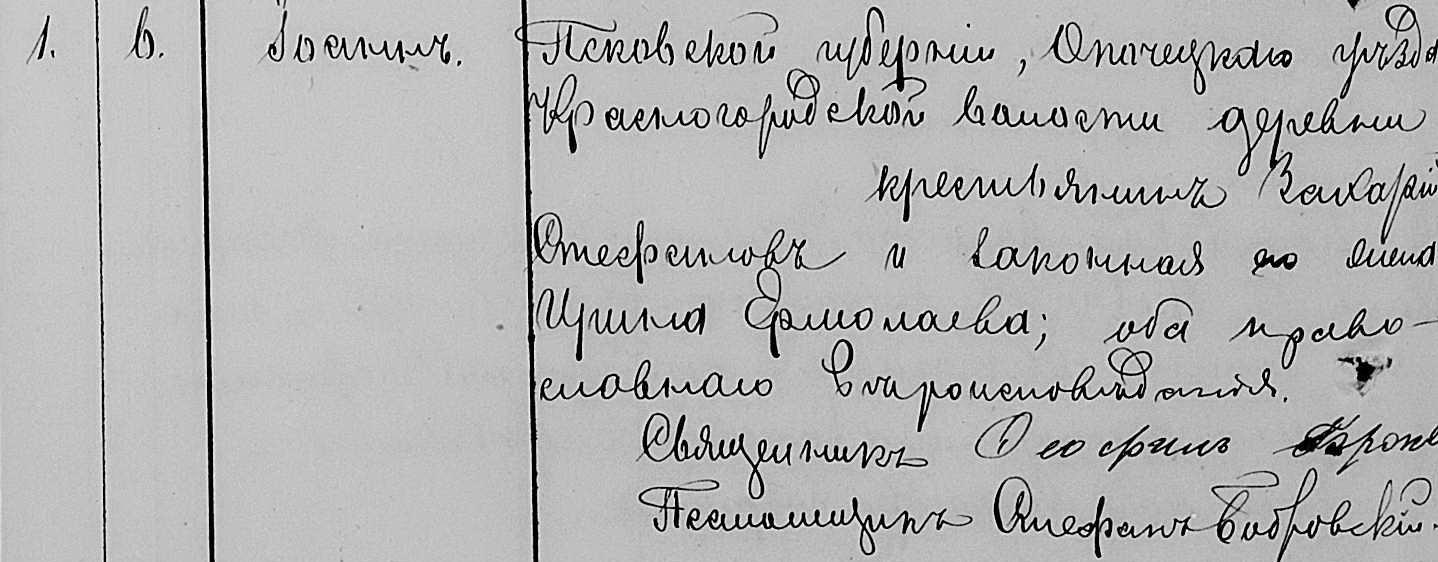 1. 6. Іоаннъ. Псковской губерніи, Опочецкаго уѣзда
Красногородской волости деревни
крестьянинъ Захарій
Стефановъ и законная его жена
Ирина Ермолаева; оба право-
славнаго вѣроисповѣданія.
Священникъ Ѳеофилъ
Псаломщикъ Стефанъ Бобровскій.